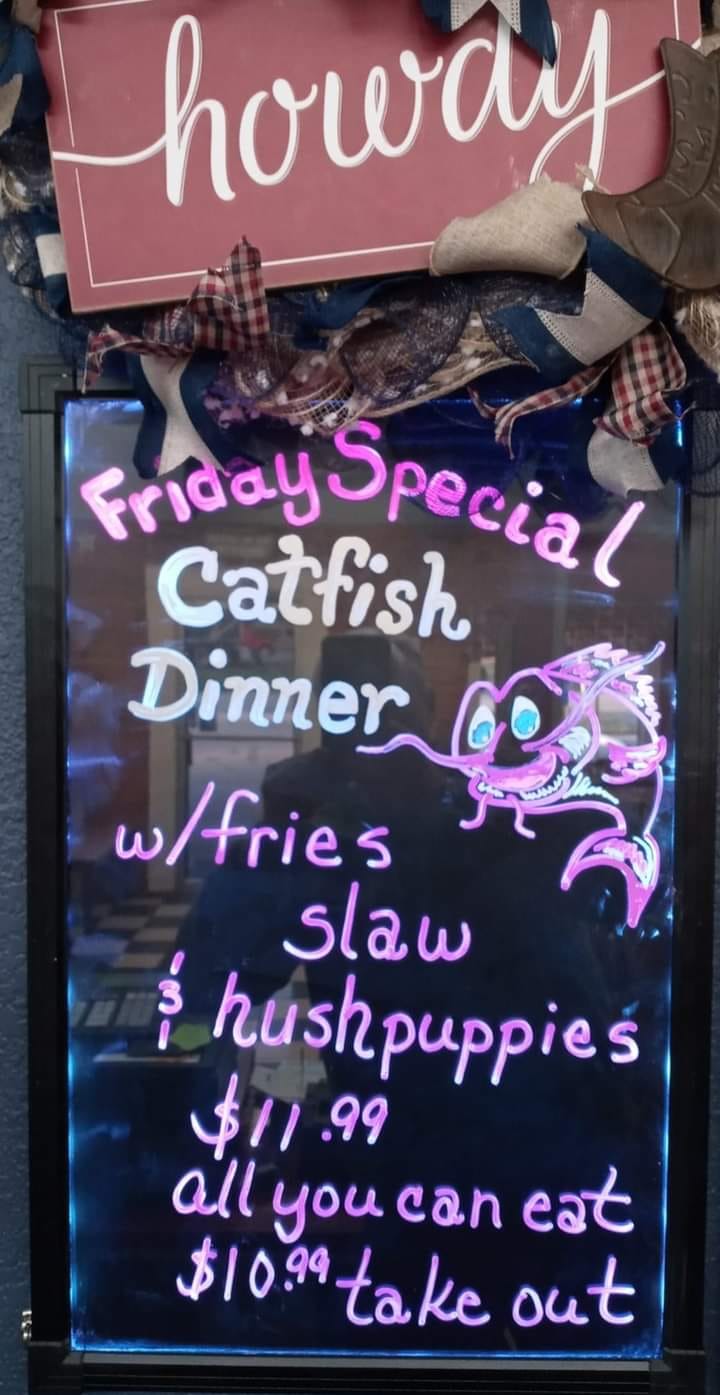 howdy
Friday Special
Catfish
Dinner
w/fries
slaw
& hushpuppies
$11.99
all you can eat
$10.99 take out